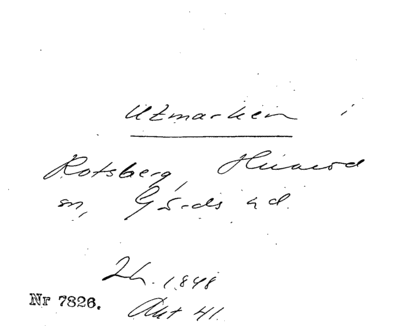 Utmarken i
Rotsberg, Huaröd
sn, Gärds hd.
1848
Nr 7826. Akt 41.